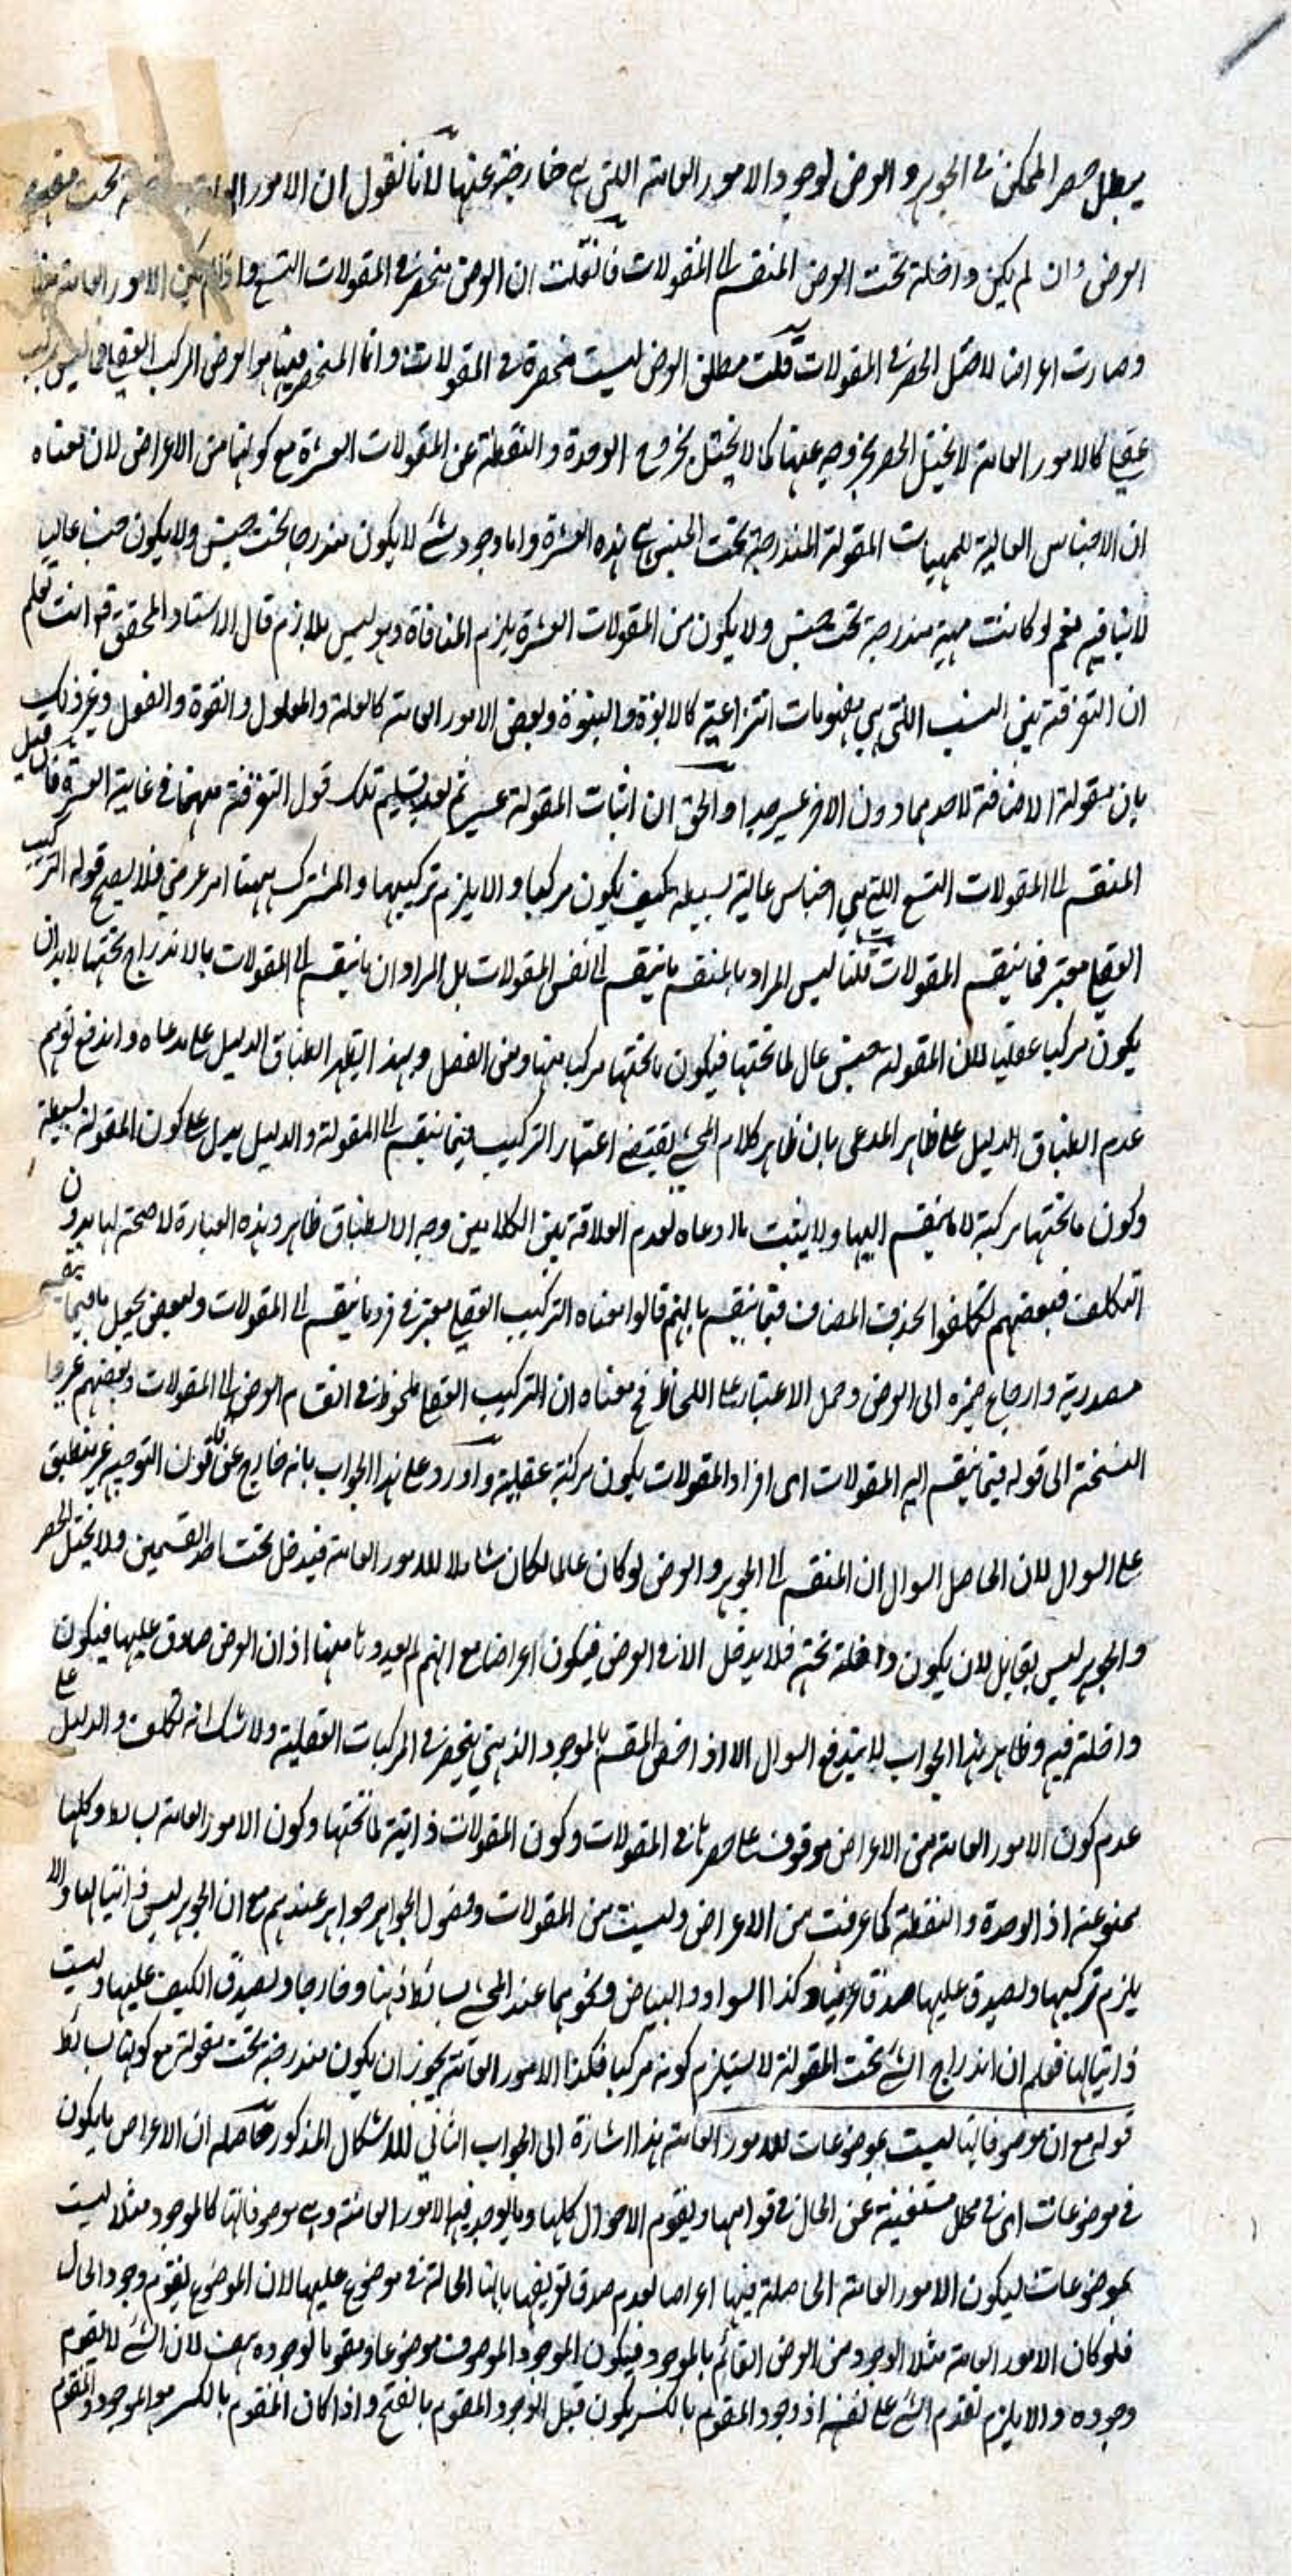 يبطل حصر الممكن في الجوهر والعرض لوجود الامور العامة اللتي هي خارجة عنها لانا نقول ان الامور تحت
العرض وان لم يكن داخلة تحت العرض المنقسم الى المقولات فان قلت ان العرض منحصر في المقولات التسع واذا لم يكن الامور العامة منها
وصارت اعراضا لاختل الحصر في المقولات قلت مطلق العرض ليست منحصرة في المقولات وانما المنحصر فيها هو العرض المركب العقلي فما ليس بمركب
عقلي كالامور العامة لا يختل الحصر بخروجه عنها كما لا يختل بخروج الوحدة والنقطة عن المقولات العشرة مع كونهما من الاعراض لان معناه
ان الاجناس العالية للمهيات المقولة المندرجة تحت الجنس هي هذه العشرة واما وجود شئ لا يكون مندرجا تحت جنس ولا يكون جنسا عاليا
لا ينافيه نعم لو كانت مهية مندرجة تحت جنس ولا يكون من المقولات العشرة يلزم المنافاة وهو ليس بلازم قال الاستاد المحقق قد انت تعلم
ان التفرقة بين النسب اللتي هي مفهومات انتزاعية كالابوة والبنوة وبعض الامور العامة كالعلة والمعلول والقوة والفعل وغير ذلك
بان مقولة الاضافة لاحدهما دون الاخر عسير جدا والحق ان اثبات المقولة عسير ثم بعد تسليم تلك قول التفرقة مهمة في غاية العسرة فان قيل
المنقسم الى المقولات التسع اللتي هي اجناس عالية بسيطة فكيف يكون مركبا والا يلزم تركيبها والمشترك بينها امر عرضي فلا يصح قوله التركيب
العقلي معتبر فيما ينقسم المقولات قلنا ليس المراد بالمنقسم ما ينقسم الى نفس المقولات بل المراد ان ما ينقسم الى المقولات بالاندراج تحتها لا بد ان
يكون مركبا عقليا لان المقولة جنس عال لما تحتها فيكون ما تحتها مركبا منها ومن الفصل وبهذا يظهر انطباق الدليل على مدعاه واندفع توهم
عدم انطباق الدليل على ظاهر المدعى بان ظاهر كلام المحشي يقتضي اعتبار التركيب فيما ينقسم الى المقولة والدليل يدل على كون المقولة بسيطة
وكون ما تحتها مركبة لا ما ينقسم اليها ولا يثبت ما ادعاه لعدم العلاقة بين الكلامين وجه الانطباق ظاهر وهذه العبارة لا صحة لها بدون
التكلف فبعضهم تكلفوا بحذف المضاف فيما ينقسم بانهم قالوا معناه التركيب العقلي معتبر في فرد ما ينقسم الى المقولات وبعض يجعل ما فيما ينقسم
مصدرية وارجاع ضميره الى العرض وحمل الاعتبار على اللحاظ فح معناه ان التركيب العقلي ملحوظ في انقسام العرض الى المقولات وبعضهم غيروا
النسخة الى قوله فيما ينقسم اليه المقولات اى افراد المقولات يكون مركبة عقلية واورد على هذا الجواب بانه خارج عن قانون التوجيه غير منطبق
على السوال لان الحاصل السوال ان المنقسم الى الجوهر والعرض لو كان عاما لكان شاملا للامور العامة فيدخل تحت احد القسمين ولا يختل الحصر
والجوهر ليس بقابل لان يكون داخلة تحته فلا يدخل الا في العرض فيكون اعراضا مع انهم لم يعدوها منها اذ ان العرض صادق عليها فيكون
داخلة فيه وظاهر هذا الجواب لا يندفع السوال الا اذا خص المقسم بالموجود الذهني ينحصر في المركبات العقلية ولا شك انه تكلف والدليل على
عدم كون الامور العامة من الاعراض موقوف على حصرها في المقولات وكون المقولات ذاتية لما تحتها وكون الامور العامة بسائط وكلها
ممنوعة اذ الوحدة والنقطة كما عرفت من الاعراض وليست من المقولات وفصول الجواهر جواهر عندهم مع ان الجوهر ليس ذاتيا لها والا
يلزم تركيبها ويصدق عليها صدقا عرضيا وكذا السواد والبياض ونحوهما عند المحشي بسائط ذهنا وخارجا ويصدق الكيف عليها وليست
ذاتيا لها فعلم ان اندراج الشئ تحت المقولة لا يستلزم كونه مركبا فكذا الامور العامة يجوز ان يكون مندرجة تحت مقولة مع كونها بسائط
قوله مع ان موصوفاتها ليست بموضوعات للامور العامة هذا اشارة الى الجواب الثاني للاشكال المذكور حاصله ان الاعراض ما يكون
في موضوعات اى في محل مستغنية عن الحال في قوامها ويقوم الاحوال كلها وما يوجد فيها الامور العامة وهي موصوفاتها كالموجود مثلا ليست
بموضوعات ليكون الامور العامة الحاصلة فيها اعراضا لعدم صدق تعريفها بانها الحالة في موضوع عليها لان الموضوع يتقوم وجود الحال
فلو كان الامور العامة مثلا الوجود من العرض القائم بالموجود فيكون الموجود الموصوف موضوعا ومقوما لوجوده هف لان الشئ لا يقوم
وجوده والا يلزم تقدم الشئ على نفسه اذ وجود المقوم بالكسر يكون قبل الوجود المقوم بالفتح واذا كان المقوم بالكسر هو الموجود والمقوم